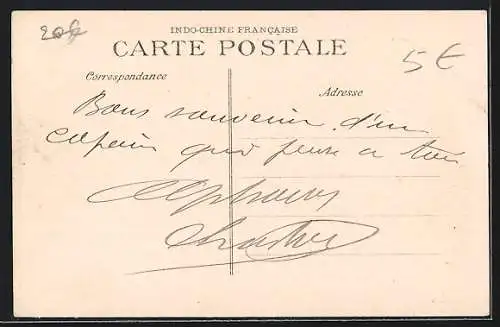 20f
INDO-CHINE FRANÇAISE
CARTE POSTALE
5€
Correspondance
Adresse
Bons souvenir d'un
copain qui pense a toi
Alphonse